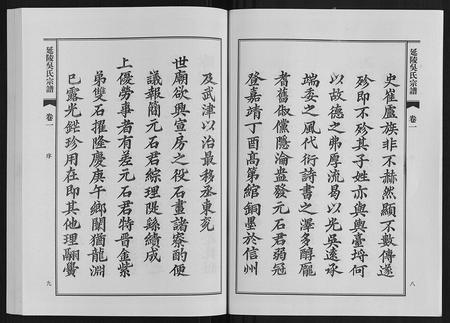 延陵吳氏宗譜
卷一
八
史崔盧族非不赫然顯不數傳遂
殄即不殄其子姓亦與輿臺埒何
以故德之弗厚流易以光吳遠承
端委之風代衍詩書之澤多醇龐
耆舊俶儻隱淪盎發元石君弱冠
登嘉靖丁酉高第綰銅墨於信州
及武津以治最移丞東兗
世廟欲興宣房之役石畫諸寮酌便
議報簡元石君綜理隄繇績成
上優勞事者有差元石君特晋金紫
弟雙石擢隆慶庚午鄉闈猶龍淵
已露光鋩珍用在即其他理翮黌
延陵吳氏宗譜
卷一
序
九